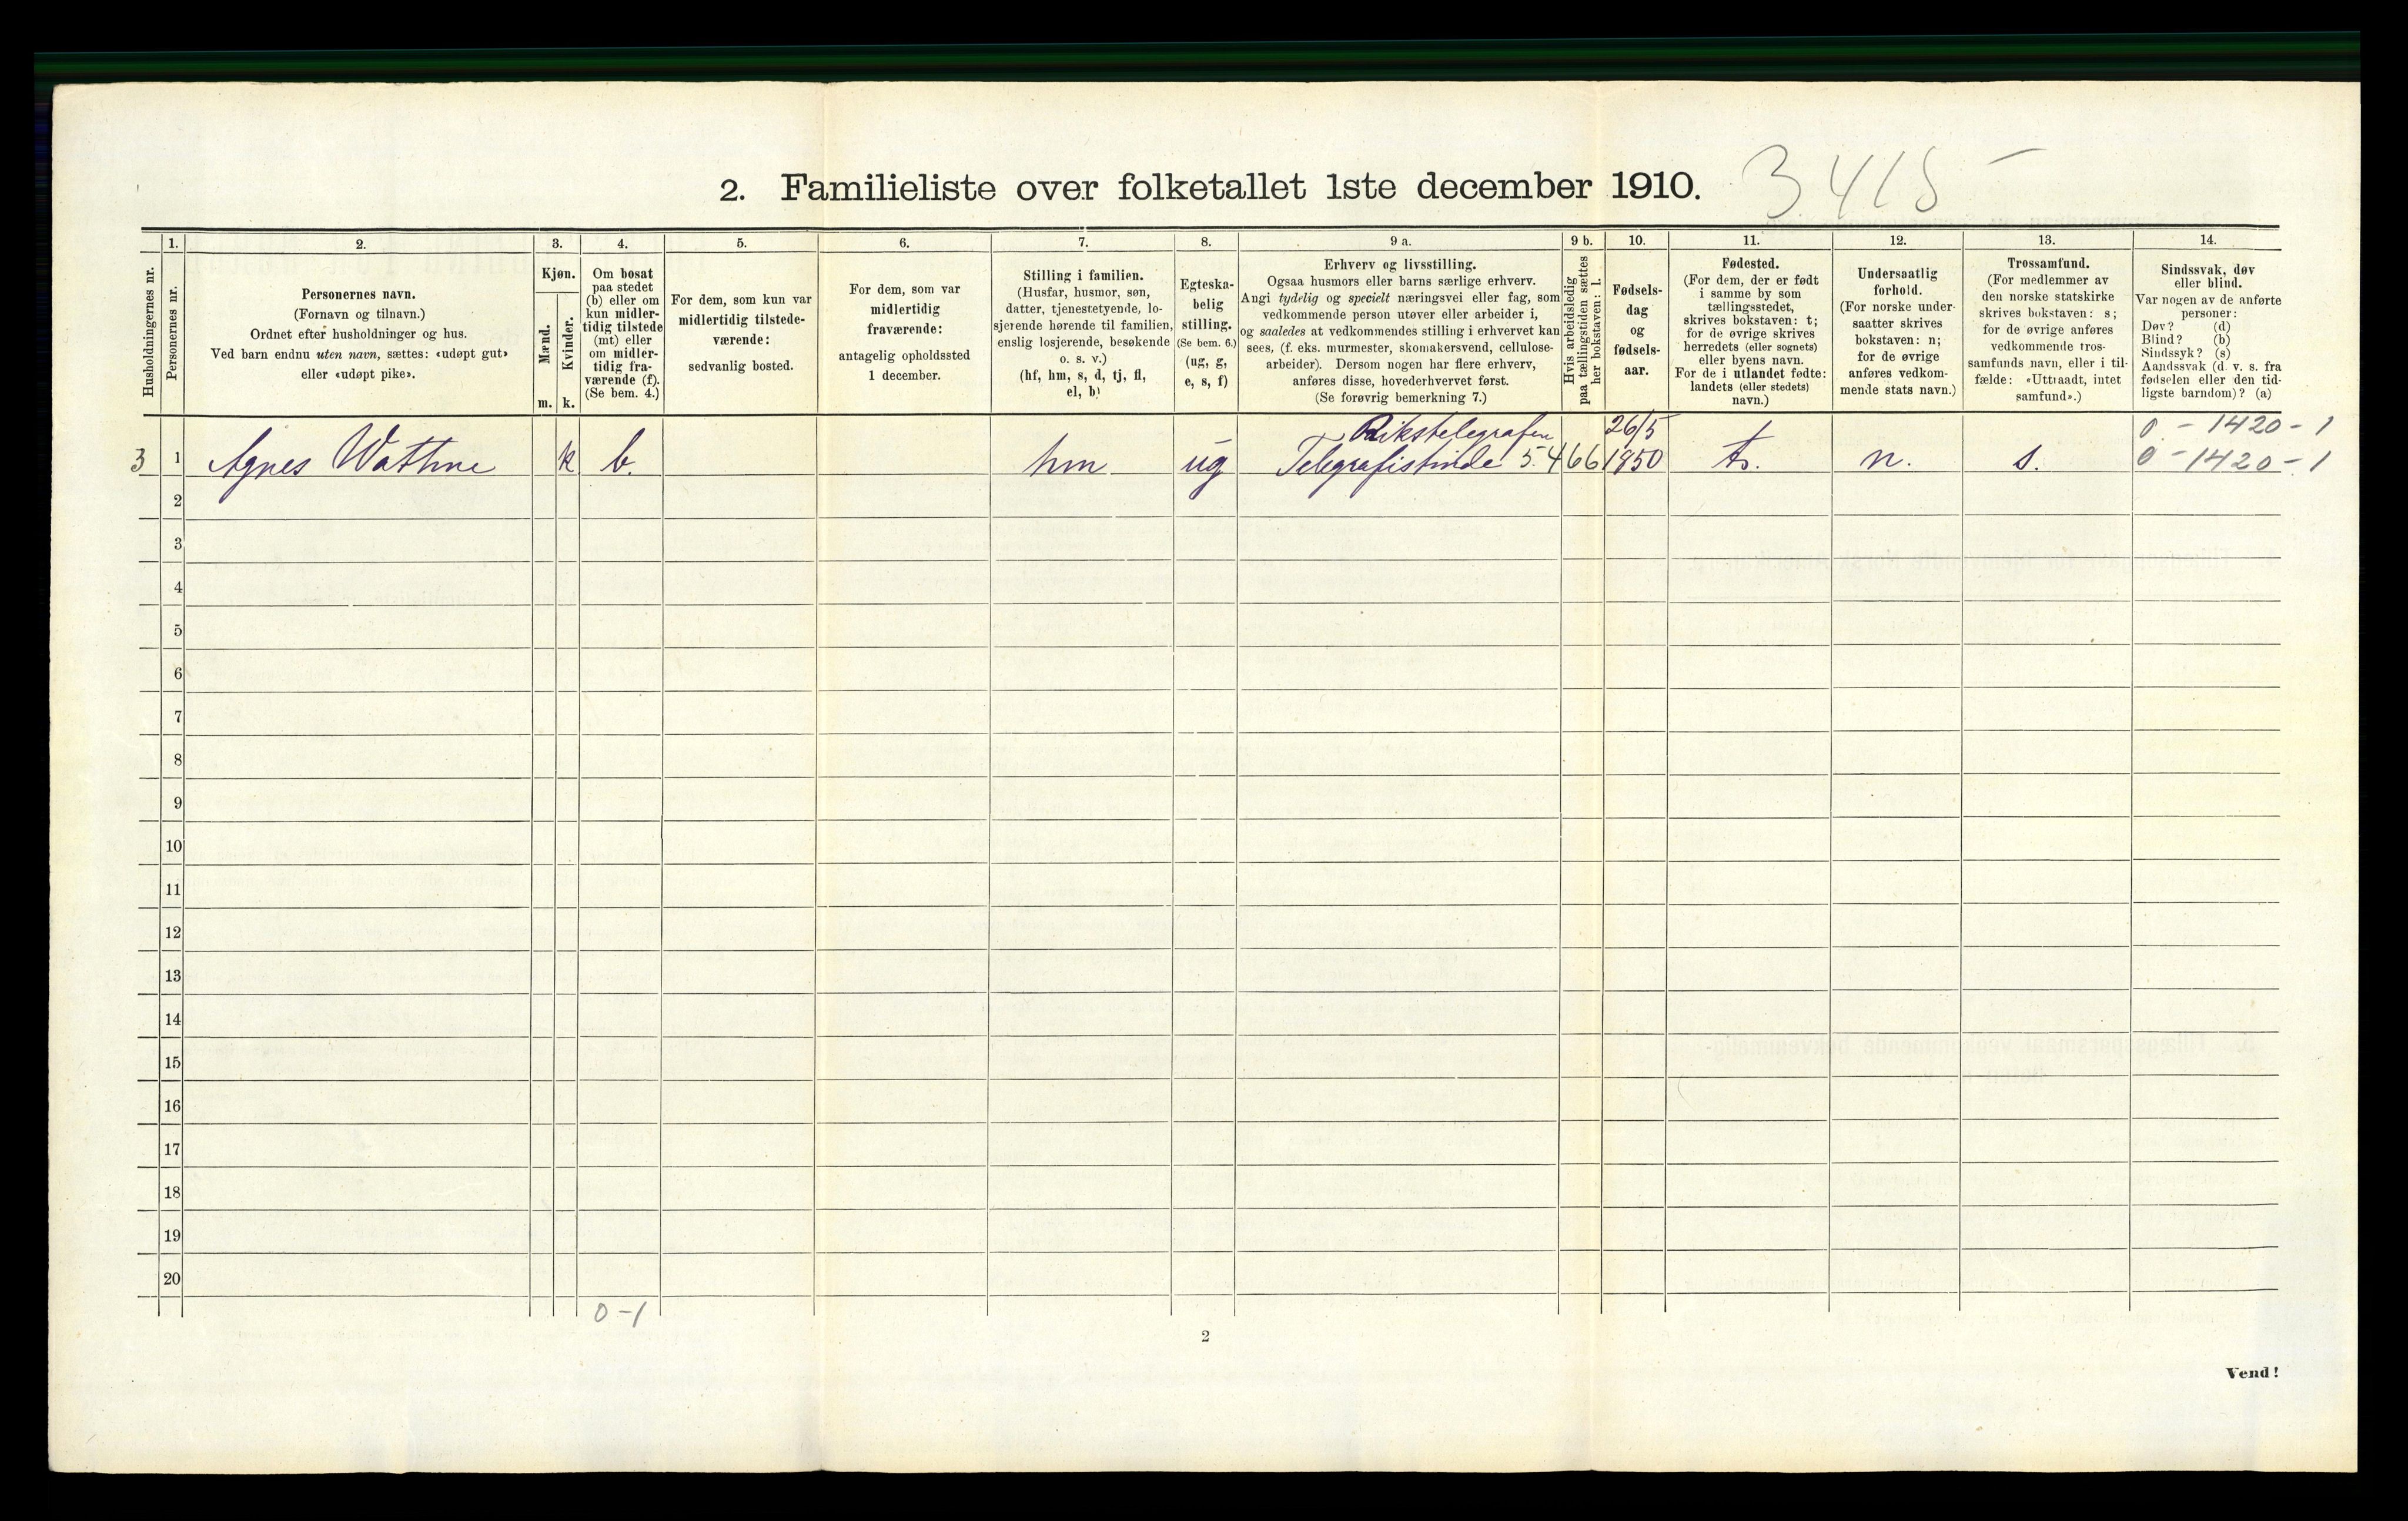 2. Familieliste over folketallet 1ste december 1910.
3415
Husholdningernes nr.
1.
Personernes nr.
2.
Personernes navn.
(Fornavn og tilnavn.)
Ordnet efter husholdninger og hus.
Ved barn endnu uten navn, sættes: «udøpt gut»
eller «udøpt pike».
3.
Kjøn.
Mænd.
m.
Kvinder.
k.
4.
Om bosat
paa stedet
(b) eller om
kun midler-
tidig tilstede
(mt) eller
om midler-
tidig fra-
værende (f).
(Se bem. 4.)
5.
For dem, som kun var
midlertidig tilstede-
værende:
sedvanlig bosted.
6.
For dem, som var
midlertidig
fraværende:
antagelig opholdssted
1 december.
7.
Stilling i familien.
(Husfar, husmor, søn,
datter, tjenestetyende, lo-
sjerende hørende til familien,
enslig losjerende, besøkende
o. s. v.)
(hf, hm, s, d, tj, fl,
el, b)
8.
Egteska-
belig
stilling.
(Se bem. 6.)
(ug, g,
e, s, f)
9 a.
Erhverv og livsstilling.
Ogsaa husmors eller barns særlige erhverv.
Angi tydelig og specielt næringsvei eller fag, som
vedkommende person utøver eller arbeider i,
og saaledes at vedkommendes stilling i erhvervet kan
sees, (f. eks. murmester, skomakersvend, cellulose-
arbeider). Dersom nogen har flere erhverv,
anføres disse, hovederhvervet først.
(Se forøvrig bemerkning 7.)
9 b.
Hvis arbeidsledig
paa tællingstiden sættes
her bokstaven: l.
10.
Fødsels-
dag
og
fødsels-
aar.
11.
Fødested.
(For dem, der er født
i samme by som
tællingsstedet,
skrives bokstaven: t;
for de øvrige skrives
herredets (eller sognets)
eller byens navn.
For de i utlandet fødte:
landets (eller stedets)
navn.)
12.
Undersaatlig
forhold.
(For norske under-
saatter skrives
bokstaven: n;
for de øvrige
anføres vedkom-
mende stats navn.)
13.
Trossamfund.
(For medlemmer av
den norske statskirke
skrives bokstaven: s;
for de øvrige anføres
vedkommende tros-
samfunds navn, eller i til-
fælde: «Uttraadt, intet
samfund».)
14.
Sindssvak, døv
eller blind.
Var nogen av de anførte
personer:
Døv? (d)
Blind? (b)
Sindssyk? (s)
Aandssvak (d. v. s. fra
fødselen eller den tid-
ligste barndom)? (a)
Rikstelegrafen 26/5 0 - 1420 - 1
3 1 Agnes Wathne k b. hm ug Telegrafistinde 5.466 1850 t. n. s. 0 - 1420 - 1
2
3
4
5
6
7
8
9
10
11
12
13
14
15
16
17
18
19
20
0 - 1
2
Vend!